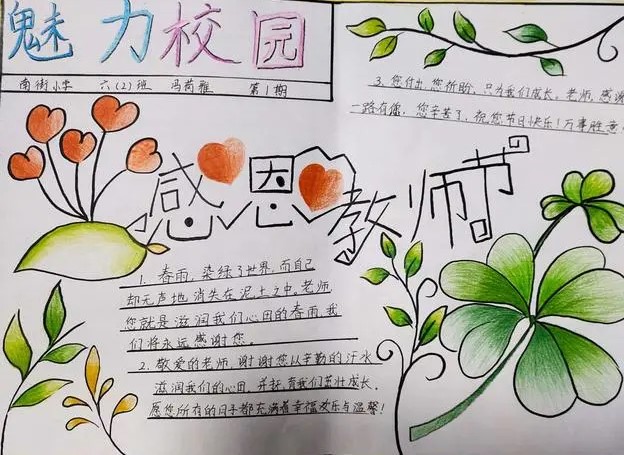 魅力校园
南街小学 六(2)班 冯荷雅 第1期
3. 您付出,您祈盼,只为我们成长。老师,感谢
一路有您,您辛苦了,祝您节日快乐!万事胜意
感恩教师节
1. 春雨,染绿了世界,而自己
却无声地消失在泥土之中。老师
您就是滋润我们心田的春雨,我
们将永远感谢您。
2. 敬爱的老师,谢谢您以辛勤的汗水
滋润我们的心田,并抚育我们茁壮成长。
愿您所有的日子都充满着幸福欢乐与温馨!